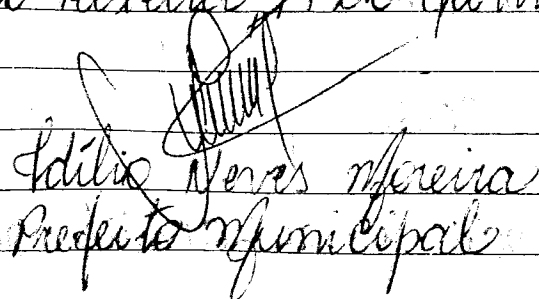 Idílio Neves Moreira
Prefeito Municipal